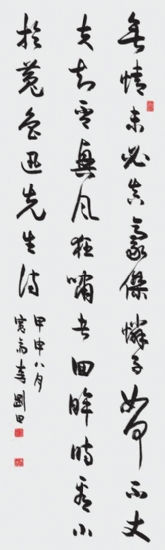 無情未必真豪傑憐子如何不丈
夫知否興風狂嘯者回眸時看小
於菟魯迅先生詩
甲申八月